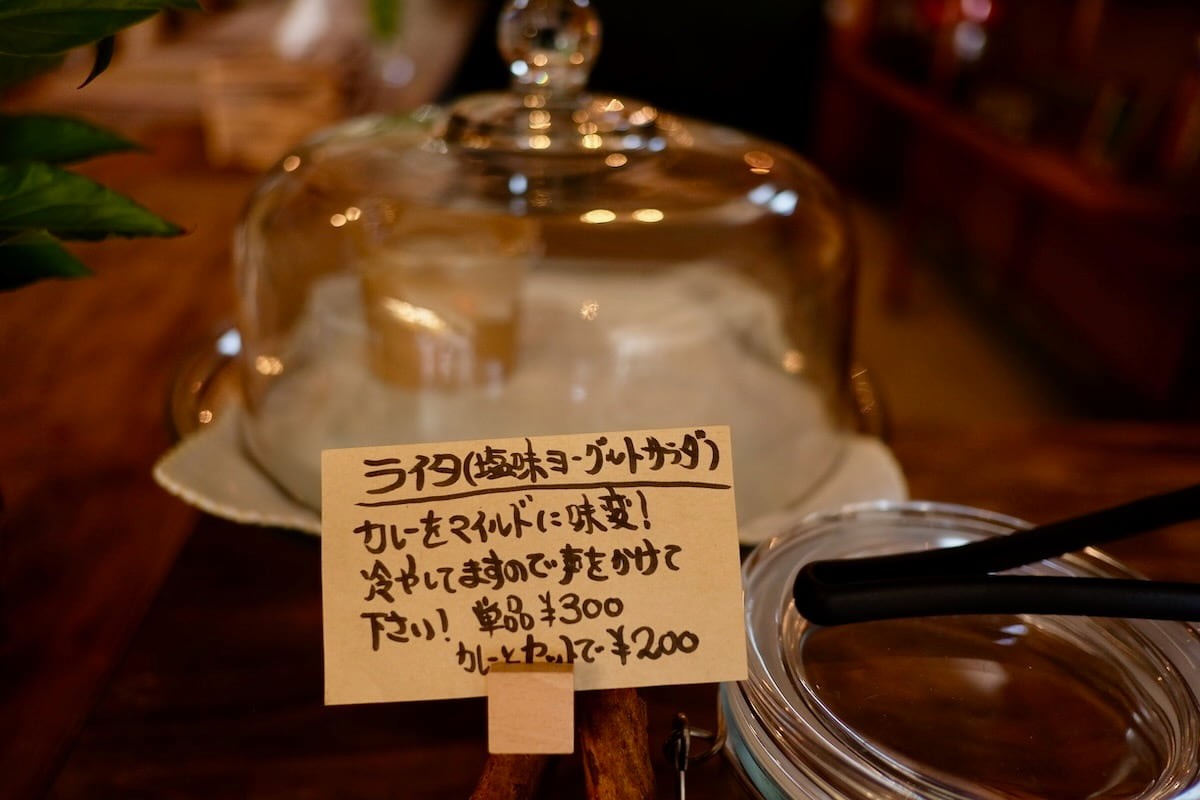 ライタ(塩味ヨーグルトサラダ)
カレーをマイルドに味変!
冷やしてますので声をかけて
下さい! 単品¥300
カレーとセットで¥200